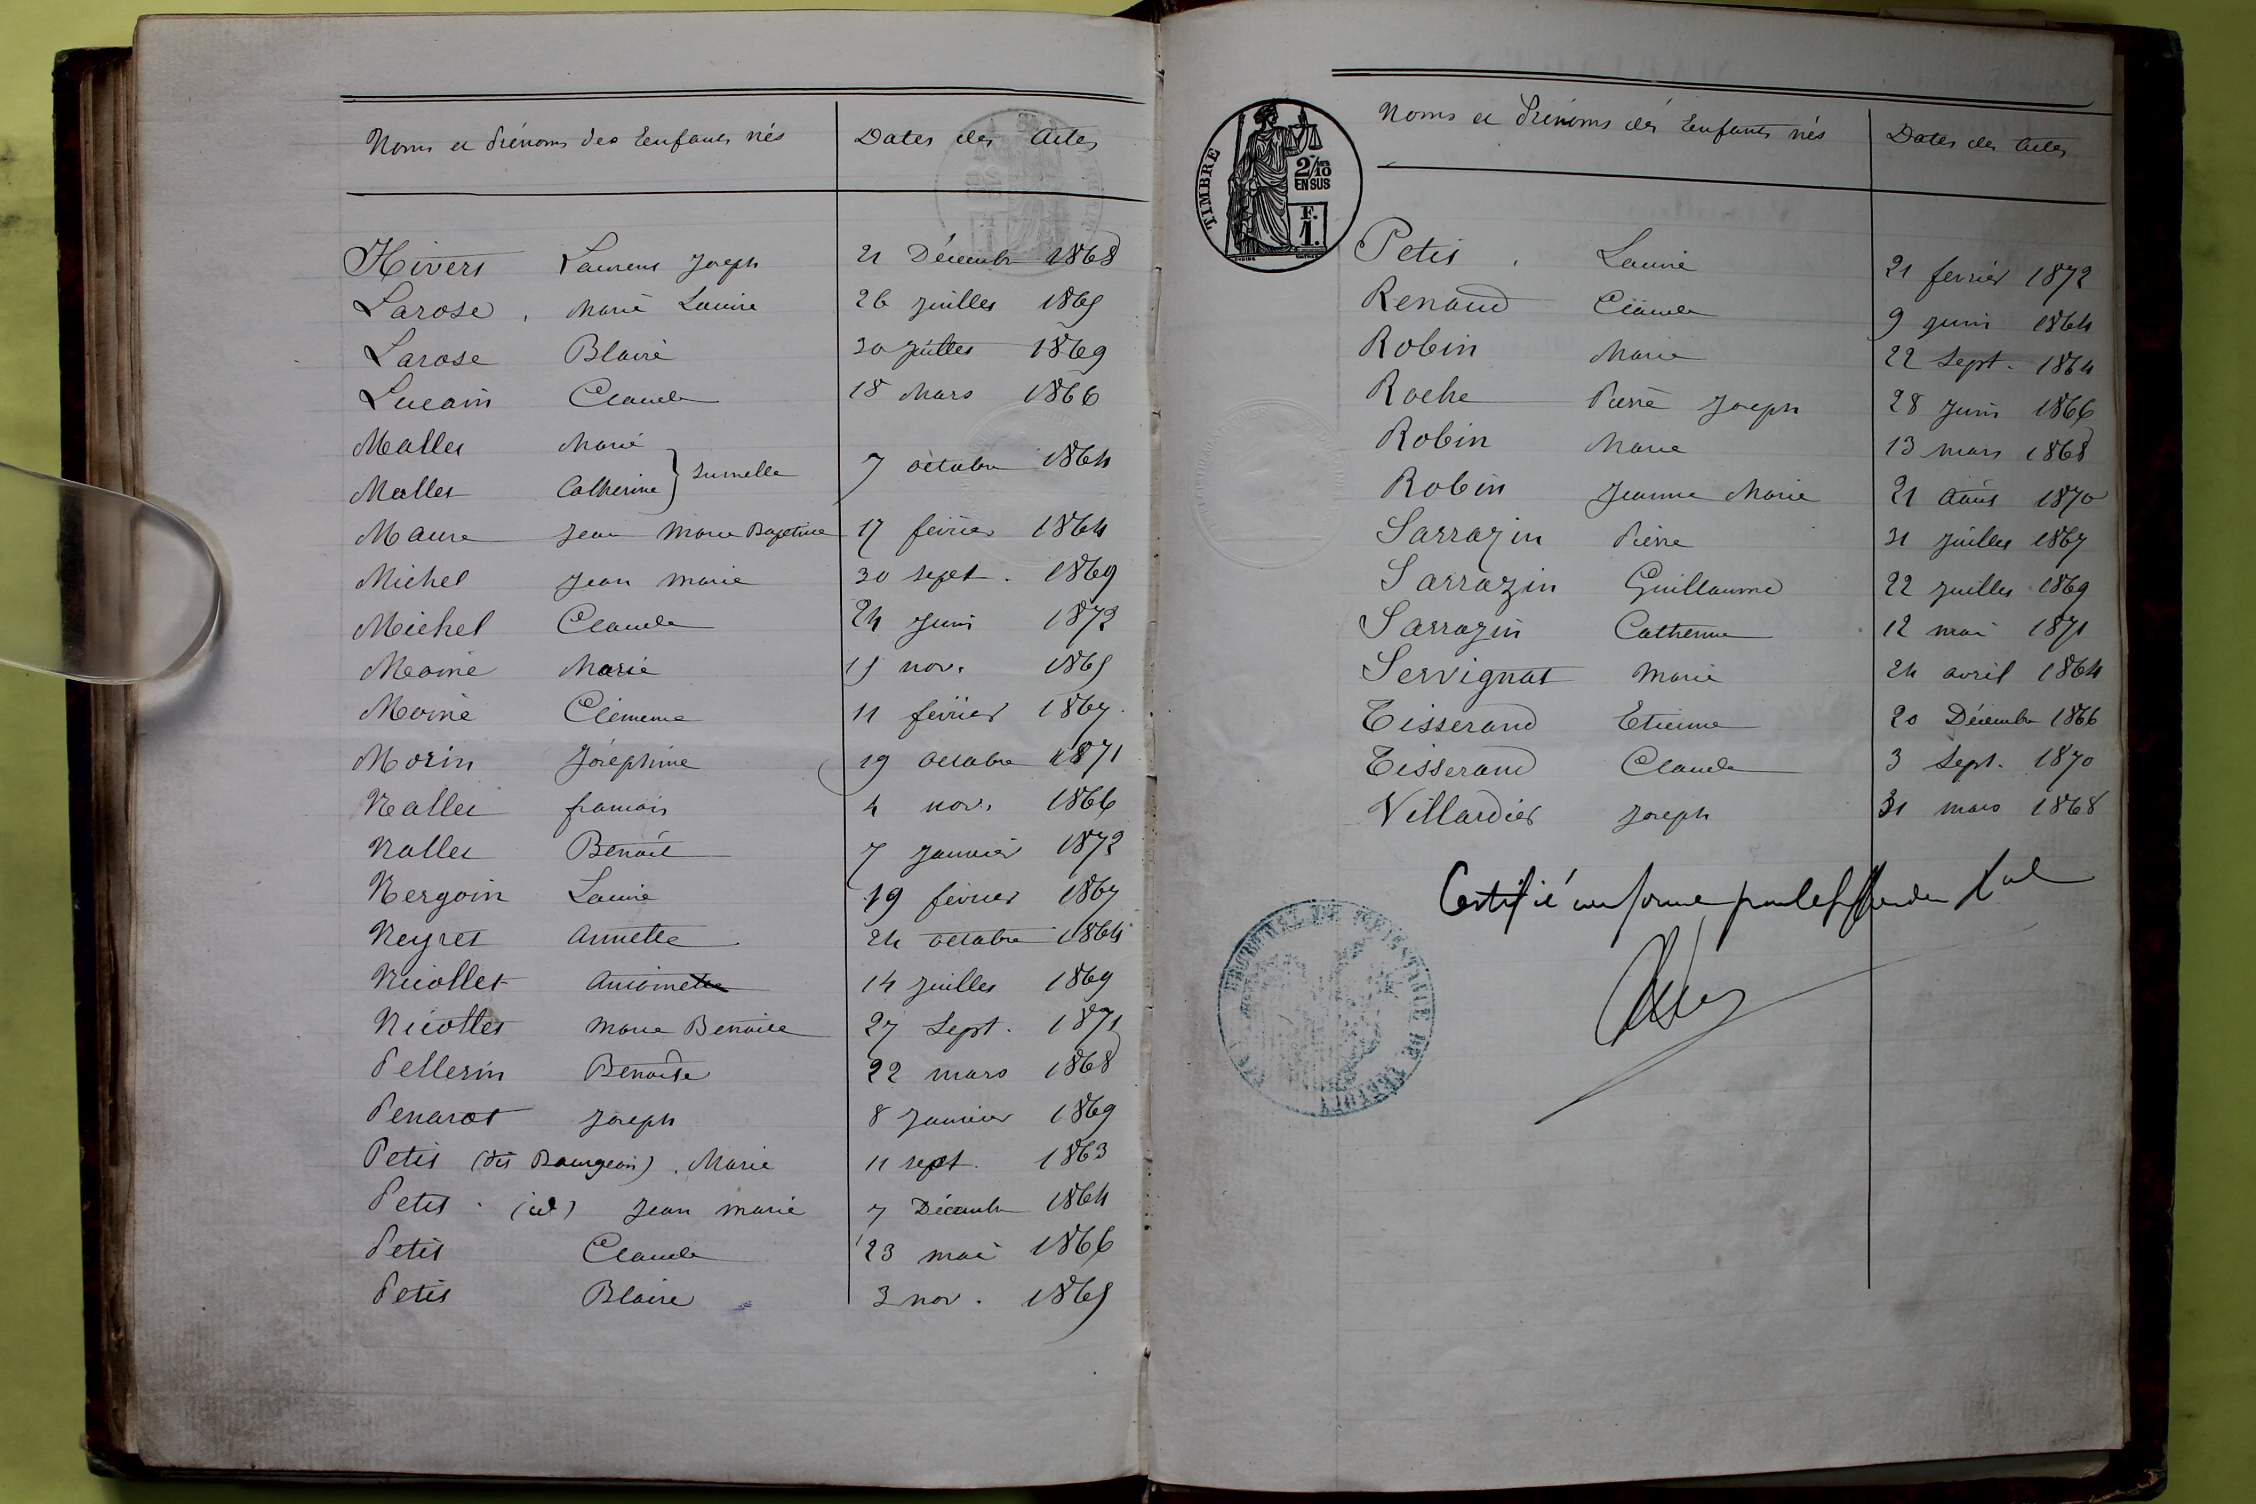 Noms et Prénoms des Enfants nés Dates des Actes
Hivert Laurent Joseph 21 Décembre 1868
Larose, Marie Louise 26 juillet 1865
Larose Blaise 30 juillet 1869
Lucain Claude 18 Mars 1866
Mallet Marie
} Jumelle 7 octobre 1864
Mallet Catherine
Maure Jean Marie Baptiste 17 février 1864
Michel Jean Marie 30 sept. 1869
Michel Claude 24 Juin 1872
Moine Marie 15 nov. 1865
Moine Clémence 11 février 1867
Morin Joséphine 19 octobre 1871
Nallet françois 4 nov. 1866
Nallet Benoit 7 Janvier 1872
Nergoin Louise 19 février 1867
Neyret Annette 24 octobre 1864
Nicollet Antoinette 14 juillet 1869
Nicollet Marie Benoite 27 Sept. 1871
Pellerin Benoite 22 mars 1868
Penarot Joseph 8 Janvier 1869
Petit (dit Bourgeois), Marie 11 sept. 1863
Petit (id) Jean Marie 7 Décembre 1864
Petit Claude 23 mai 1866
Petit Blaise 3 nov. 1865
Noms et Prénoms des Enfants nés Dates des Actes
TIMBRE
2/10
EN SUS
F.
1.
Petit, Louise 21 fevrier 1872
Renaud Claude 9 juin 1864
Robin Marie 22 Sept. 1864
Roche Pierre Joseph 28 Juin 1866
Robin Marie 13 mars 1868
Robin Jeanne Marie 21 Août 1870
Sarrazin Pierre 31 juillet 1867
Sarrazin Guillaume 22 juillet 1869
Sarrazin Catherine 12 mai 1871
Servignat Marie 24 avril 1864
Tisserand Etienne 20 Décembre 1866
Tisserand Claude 3 Sept. 1870
Villardier Joseph 31 mars 1868
Certifié conforme
TRIBUNAL DE 1ère INSTANCE DE